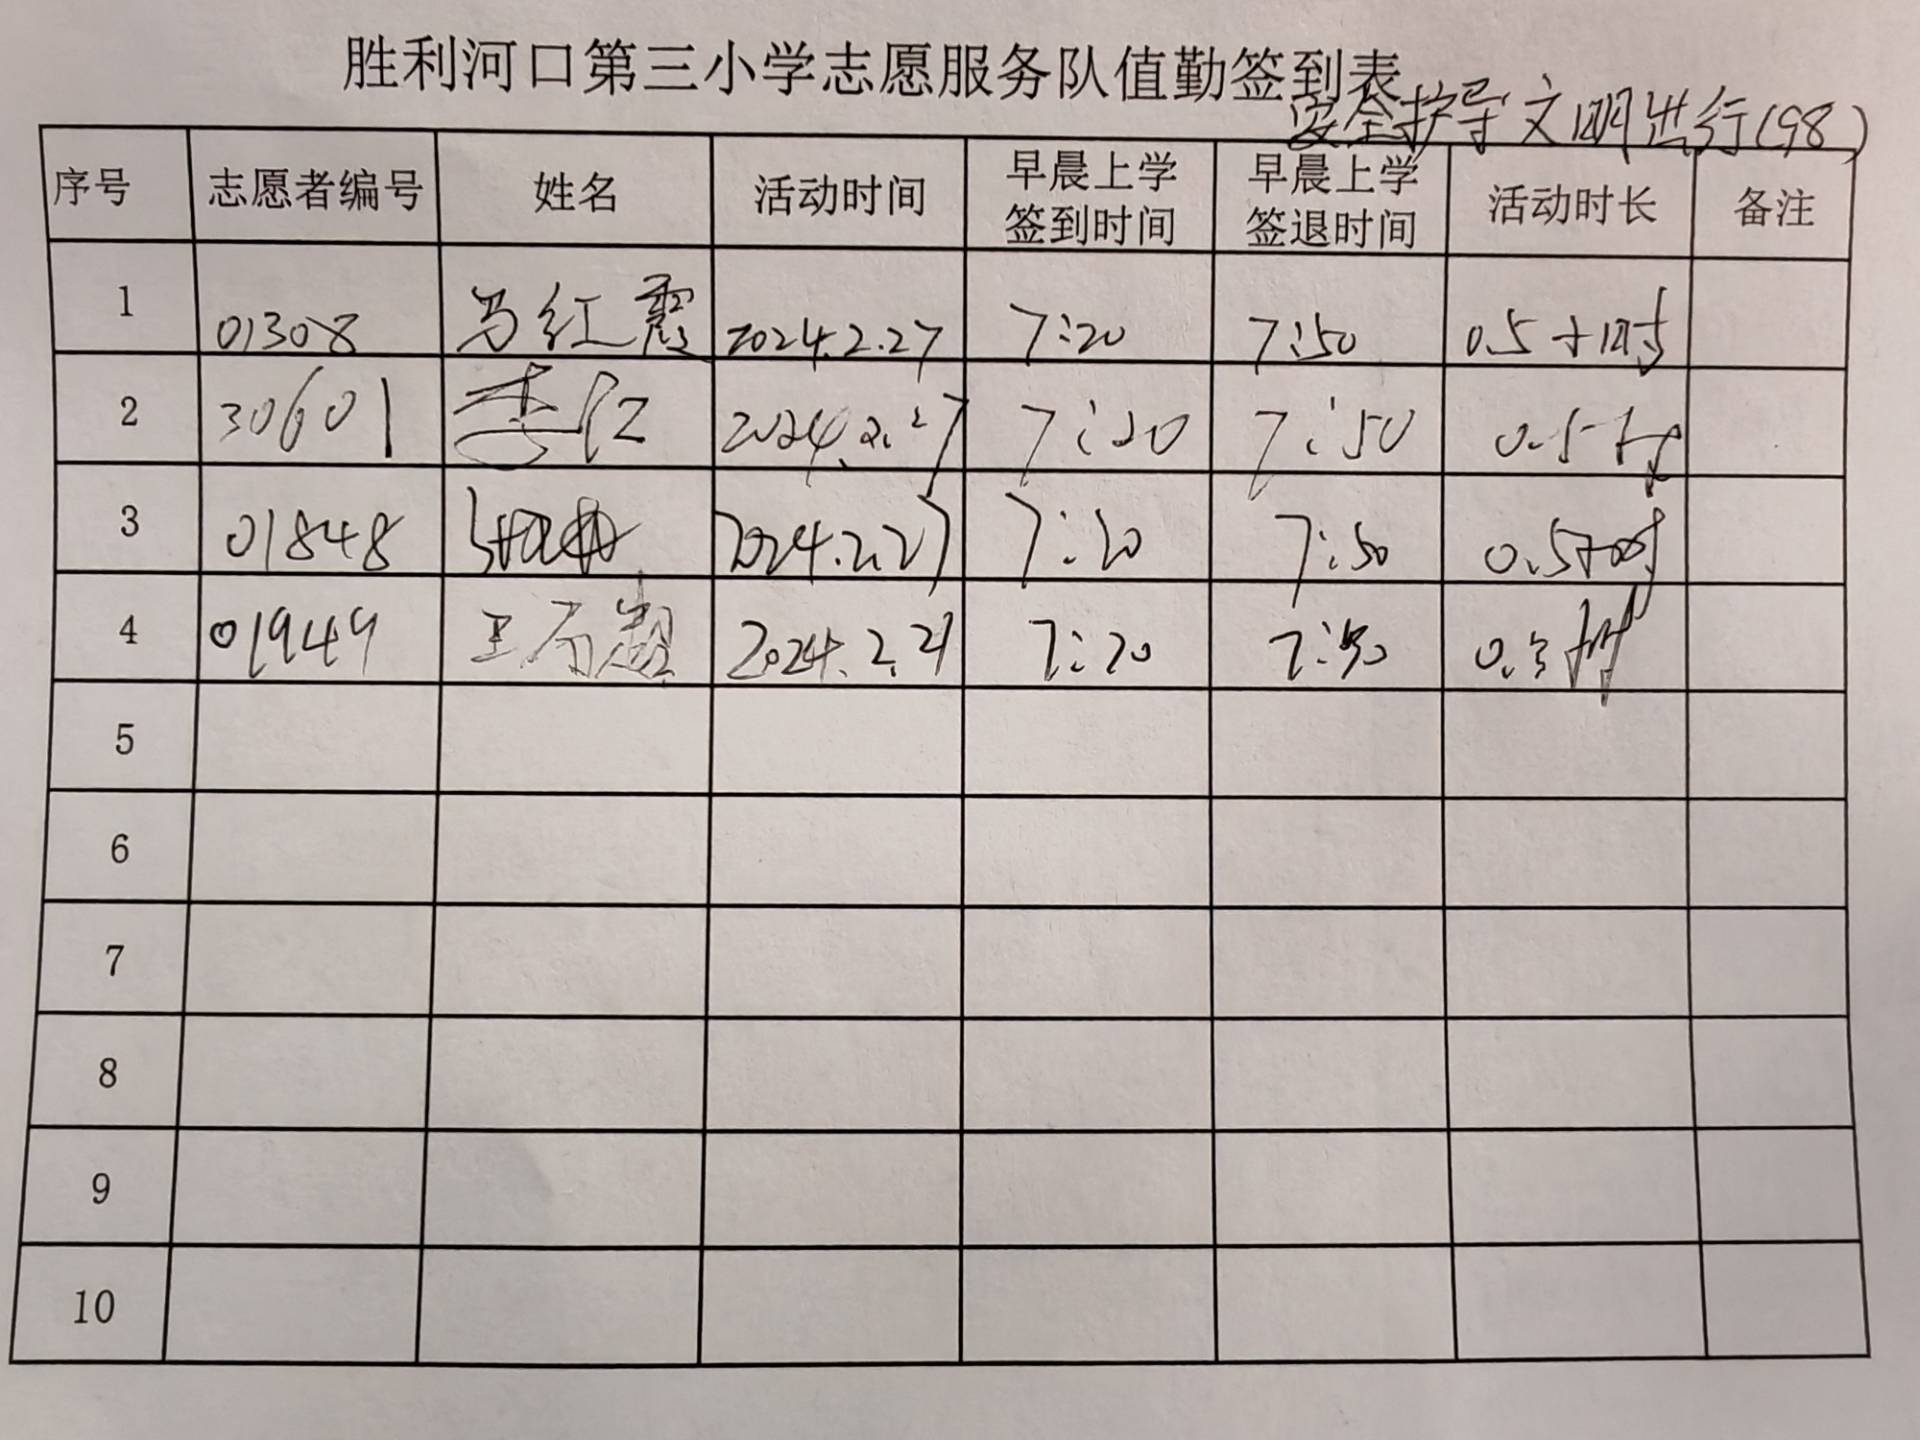 胜利河口第三小学志愿服务队值勤签到表
安全护导文明出行(98)
序号 志愿者编号 姓名 活动时间 早晨上学签到时间 早晨上学签退时间 活动时长 备注
1 01308 马红霞 2024.2.27 7:20 7:50 0.5小时
2 30601 李仁 2024.2.27 7:20 7:50 0.5小时
3 01848 2024.2.27 7:20 7:50 0.5小时
4 01949 王 2024.2.27 7:20 7:50 0.5小时
5
6
7
8
9
10